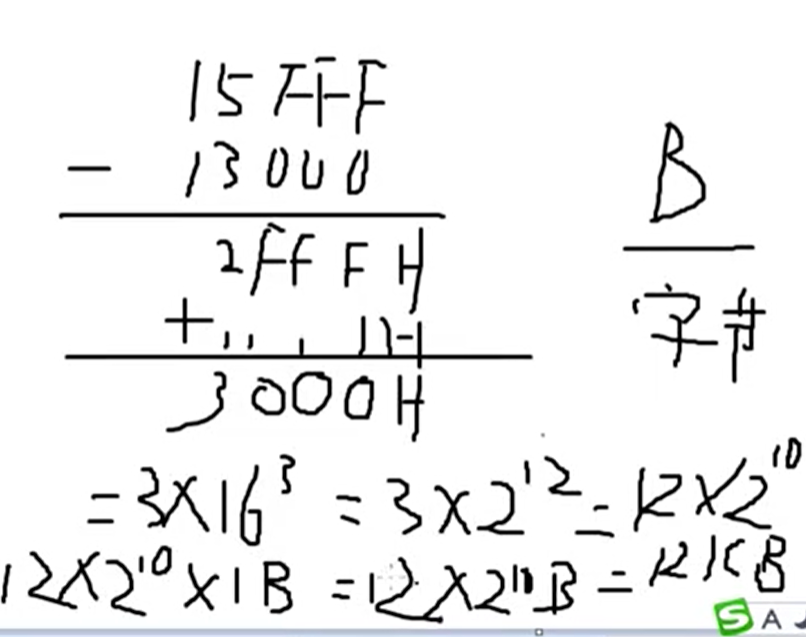 15FFF
- 13000
2FFFH
+ 1H
3000H
B
字节
=3×16³ = 3×2¹² = 12×2¹⁰
12×2¹⁰×1B = 12×2¹⁰B = 12KB
S A